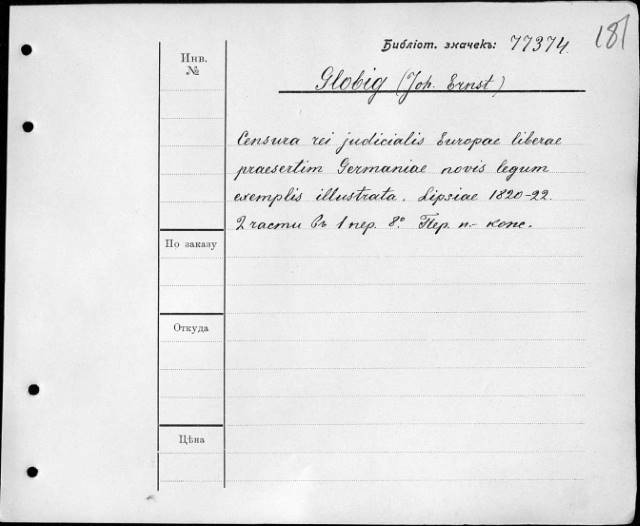 181
Библіот. значекъ: 77374
Инв.
№
Globig (Joh. Ernst)
Censura rei judicialis Europae liberae
praesertim Germaniae novis legum
exemplis illustrata. Lipsiae 1820-22.
2 части въ 1 пер. 8º. Пер. п.- кож.
По заказу
Откуда
Цѣна